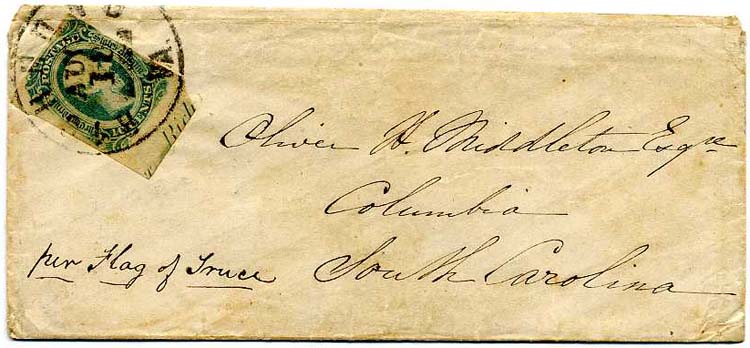 AU
11
Rich
Oliver H. Middleton Esqre
Columbia
per Flag of Truce
South Carolina